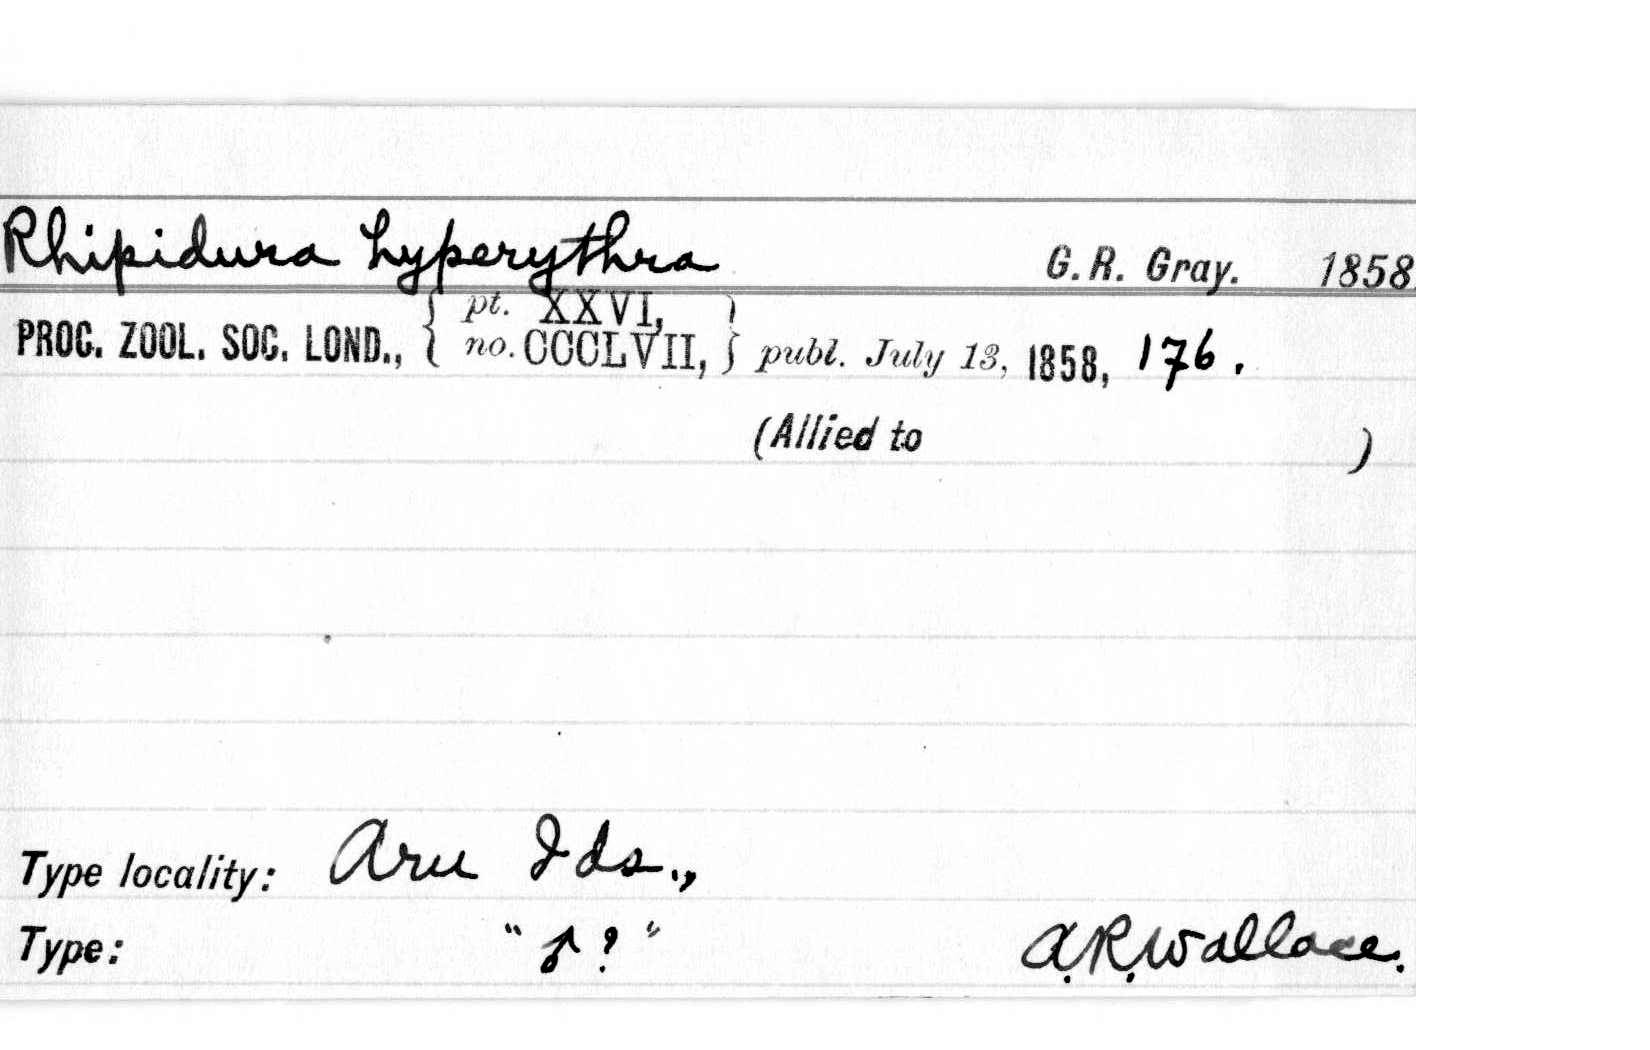 Rhipidura hyperythra G. R. Gray. 1858.
PROC. ZOOL. SOC. LOND., { pt. XXVI, no. CCCLVII, } publ. July 13, 1858, 176.
(Allied to )
Type locality: Aru Ids.,
Type: "♂?" A.R.Wallace.